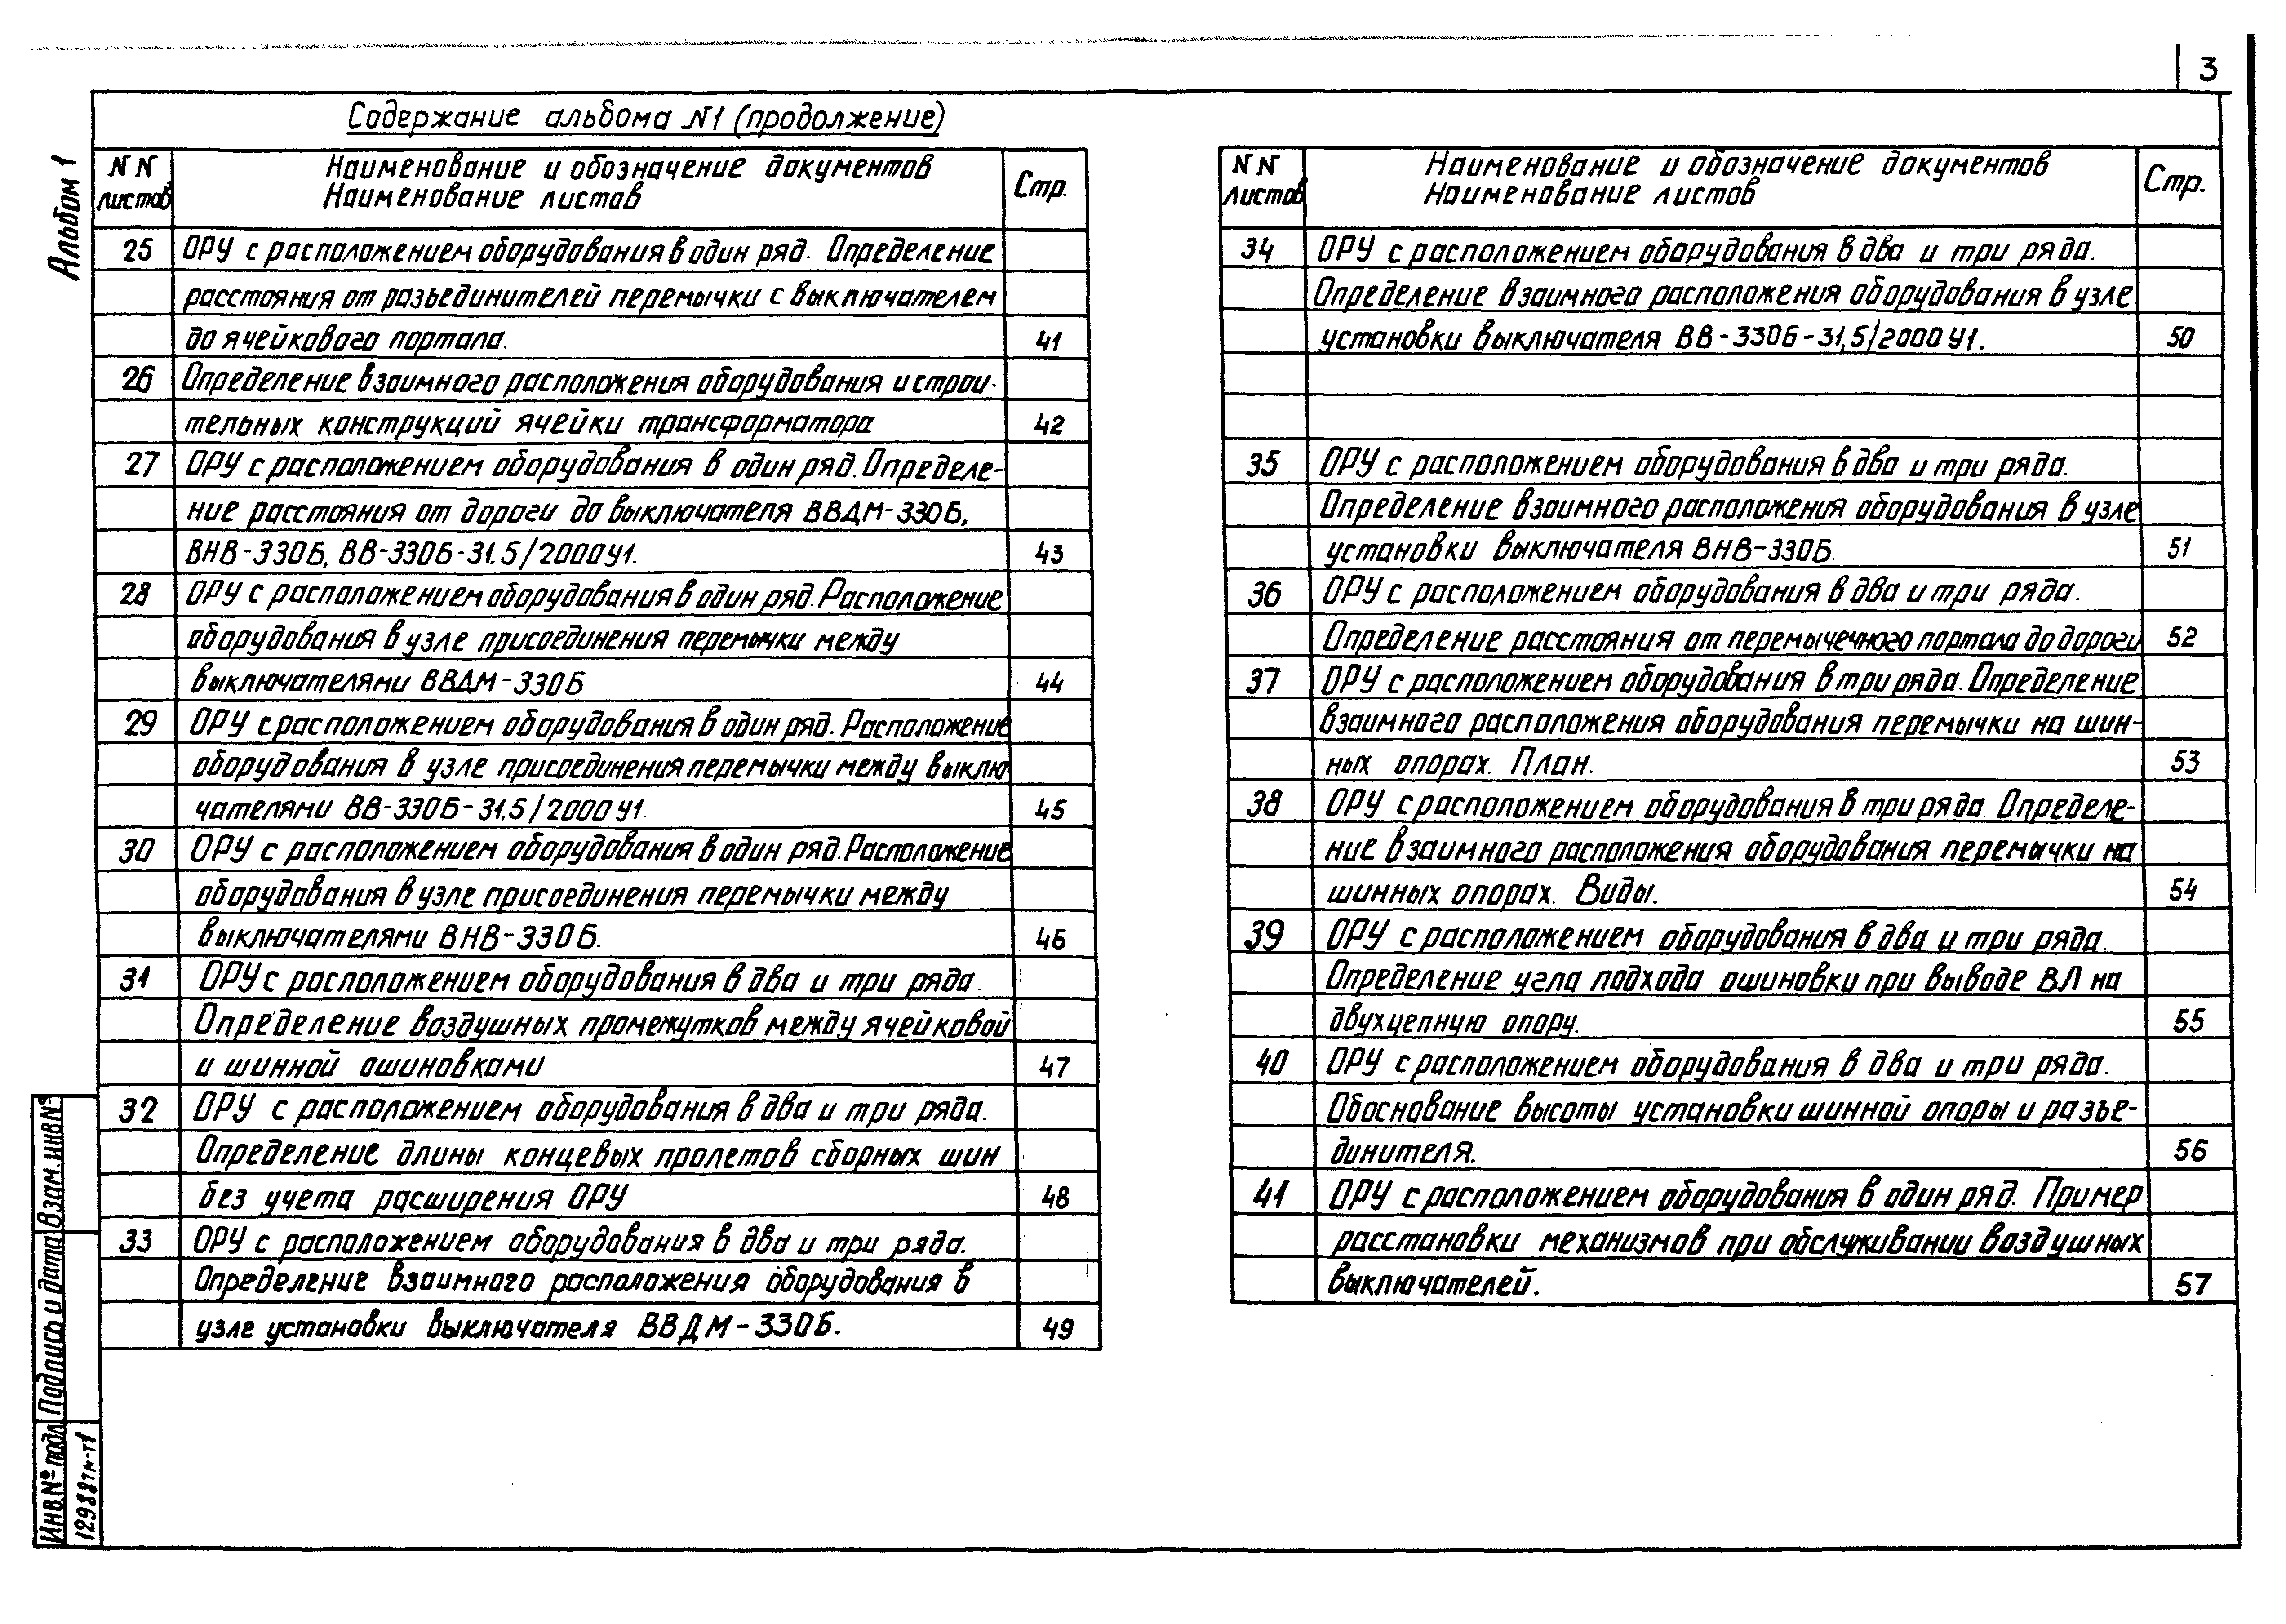 3
Альбом 1
Содержание альбома N1 (продолжение)
N N листов
Наименование и обозначение документов
Наименование листов
Стр.
25 ОРУ с расположением оборудования в один ряд. Определение
расстояния от разъединителей перемычки с выключателем
до ячейкового портала. 41
26 Определение взаимного расположения оборудования и строи-
тельных конструкций ячейки трансформатора 42
27 ОРУ с расположением оборудования в один ряд. Определе-
ние расстояния от дороги до выключателя ВВДМ-330Б,
ВНВ-330Б, ВВ-330Б-31.5/2000У1. 43
28 ОРУ с расположением оборудования в один ряд. Расположение
оборудования в узле присоединения перемычки между
выключателями ВВДМ-330Б 44
29 ОРУ с расположением оборудования в один ряд. Расположение
оборудования в узле присоединения перемычки между выклю
чателями ВВ-330Б-31.5/2000У1. 45
30 ОРУ с расположением оборудования в один ряд. Расположение
оборудования в узле присоединения перемычки между
выключателями ВНВ-330Б. 46
31 ОРУ с расположением оборудования в два и три ряда.
Определение воздушных промежутков между ячейковой
и шинной ошиновками 47
32 ОРУ с расположением оборудования в два и три ряда.
Определение длины концевых пролетов сборных шин
без учета расширения ОРУ 48
33 ОРУ с расположением оборудования в два и три ряда.
Определение взаимного расположения оборудования в
узле установки выключателя ВВДМ-330Б. 49
N N листов
Наименование и обозначение документов
Наименование листов
Стр.
34 ОРУ с расположением оборудования в два и три ряда.
Определение взаимного расположения оборудования в узле
установки выключателя ВВ-330Б-31,5/2000У1. 50
35 ОРУ с расположением оборудования в два и три ряда.
Определение взаимного расположения оборудования в узле
установки выключателя ВНВ-330Б. 51
36 ОРУ с расположением оборудования в два и три ряда.
Определение расстояния от перемычечного портала до дороги 52
37 ОРУ с расположением оборудования в три ряда. Определение
взаимного расположения оборудования перемычки на шин-
ных опорах. План. 53
38 ОРУ с расположением оборудования в три ряда. Определе-
ние взаимного расположения оборудования перемычки на
шинных опорах. Виды. 54
39 ОРУ с расположением оборудования в два и три ряда.
Определение угла подхода ошиновки при выводе ВЛ на
двухцепную опору. 55
40 ОРУ с расположением оборудования в два и три ряда.
Обоснование высоты установки шинной опоры и разъе-
динителя. 56
41 ОРУ с расположением оборудования в один ряд. Пример
расстановки механизмов при обслуживании воздушных
выключателей. 57
Взам. инв №
Подпись и дата
Инв № подл
12988тм-т1